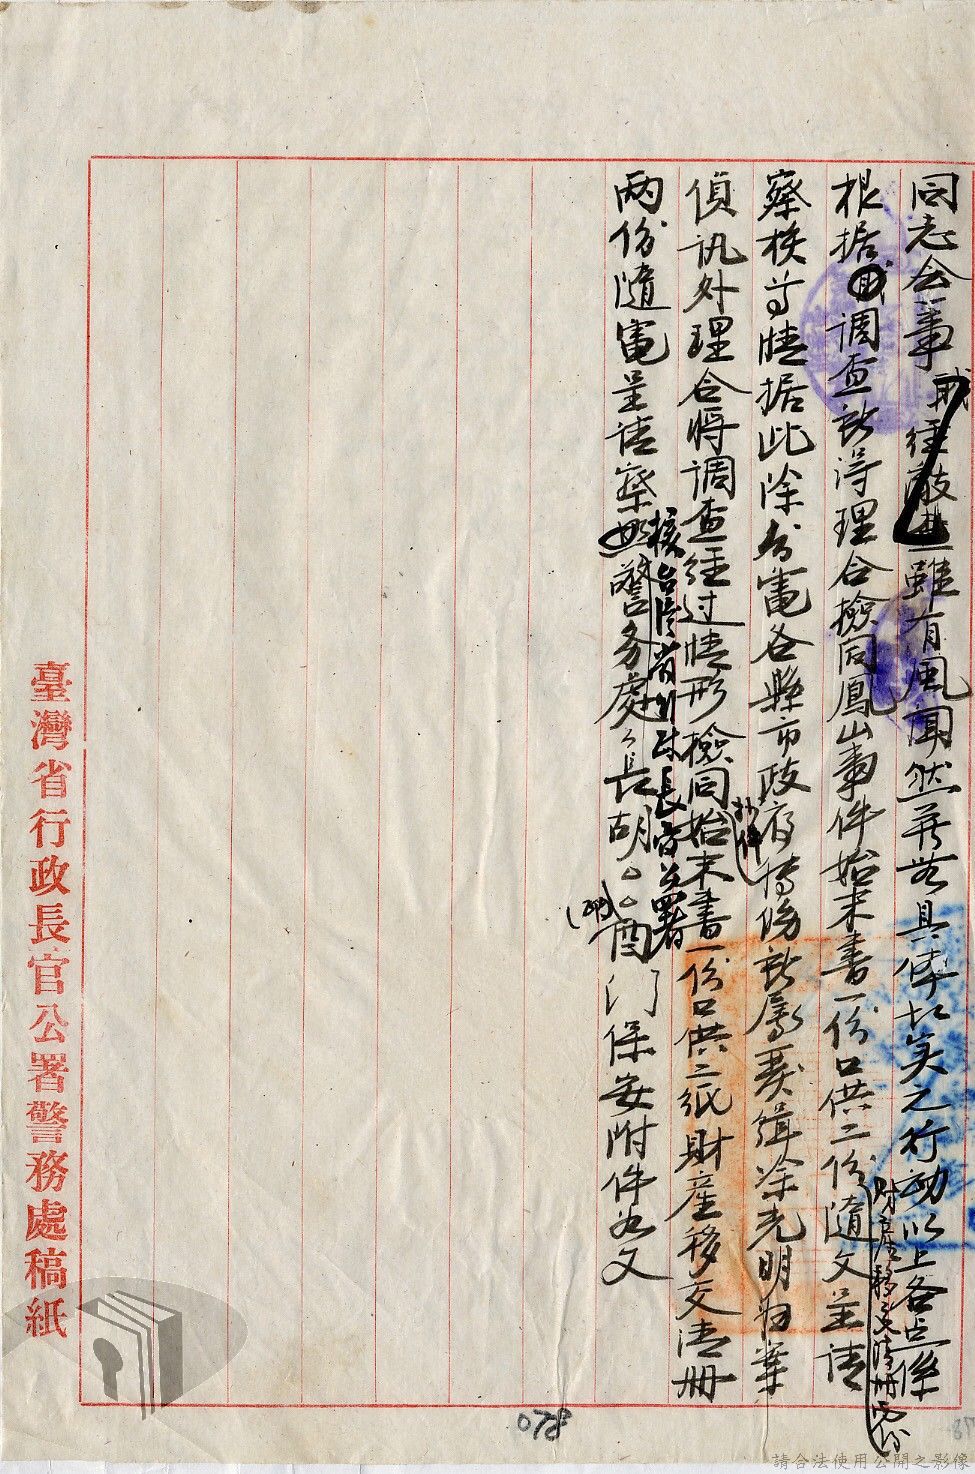 同志会一事職經敲查雖有風聞然并無具体切实之行動以上各点係
根据職調查所得理合檢同鳳山事件始末書一份口供二份隨文呈請
財產移交清册两份
察核等情据此除分電各縣市政府轉飭所屬嚴緝涂光明归案
偵訊外理合將調查經过情形檢同始末書一份口供二紙財產移交清册
附件
两份隨電呈請察
核台湾省行政長官公署
警务處處長胡○○酉
保安附件如文
臺灣省行政長官公署警務處稿紙
078
請合法使用公開之影像